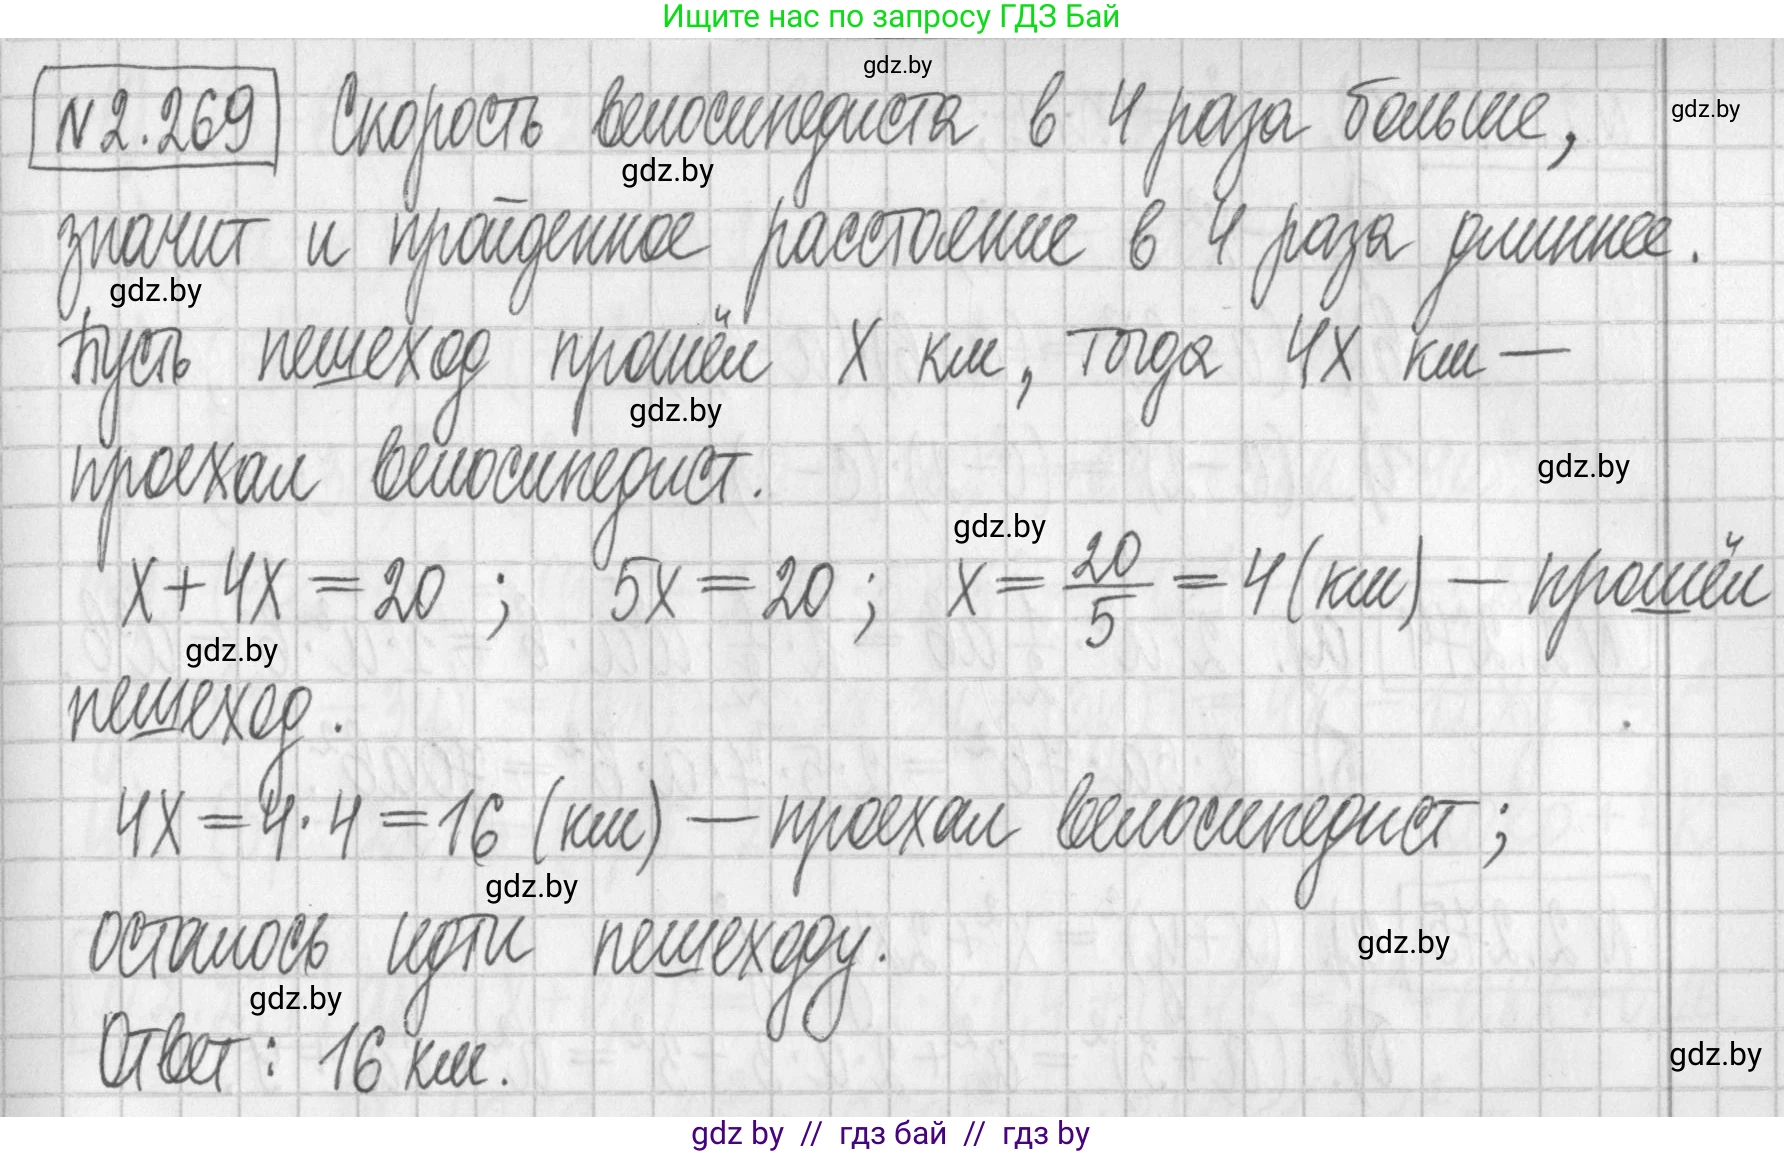 Ищите нас по запросу ГДЗ Бай
gdz.by
№2.269 Скорость велосипедиста в 4 раза больше,
gdz.by
gdz.by
значит и пройденное расстояние в 4 раза длиннее.
gdz.by
Пусть пешеход прошёл x км, тогда 4x км —
gdz.by
проехал велосипедист.
gdz.by
gdz.by
x + 4x = 20 ; 5x = 20 ; x = 20/5 = 4 (км) — прошёл
gdz.by
пешеход.
4x = 4 · 4 = 16 (км) — проехал велосипедист ;
gdz.by
осталось идти пешеходу.
gdz.by
gdz.by
Ответ : 16 км.
gdz.by
gdz by // гдз бай // гдз by